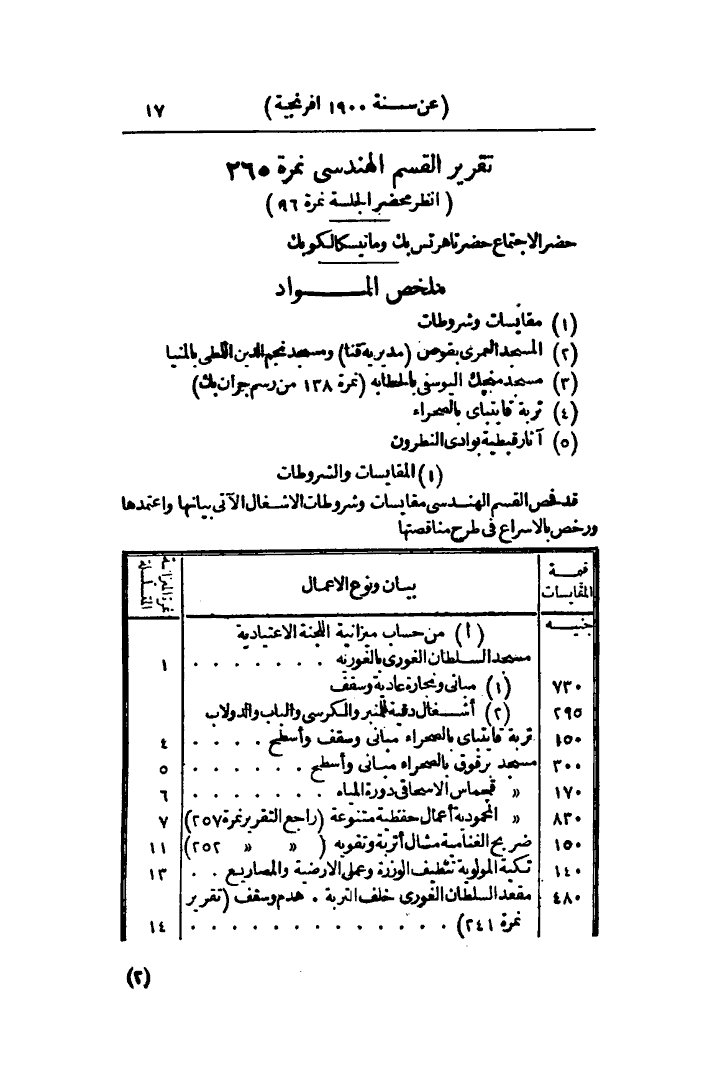 (عن سنة ١٩٠٠ افرنجية) ١٧
تقرير القسم الهندسى نمرة ٢٦٥
(انظر محضر الجلسة نمرة ٩٦)
حضر الاجتماع حضرتا هرتس بك وماتيسكالكو بك
ملخص المـــواد
(١) مقايسات وشروطات
(٢) المسجد العمرى بقوص (مديرية قنا) ومسجد نجم الدين اللطى بالمنيا
(٣) مسجد منجك اليوسفى بالحطابه (نمرة ١٣٨ من رسم جران بك)
(٤) تربة قايتباى بالصحراء
(٥) آثار قبطية بوادى النطرون
(١) المقايسات والشروطات
قد فحص القسم الهندسى مقايسات وشروطات الاشغال الآتى بيانها واعتمدها
ورخص بالاسراع فى طرح مناقصتها
قيمة المقايسات | بيان ونوع الاعمال | نمرة الميزانية المتسلسلة
جنيه | (أ) من حساب ميزانية اللجنة الاعتيادية
مسجد السلطان الغورى بالغوريه . . . . . . . ١
٧٣٠ (١) مبانى ونجارة عادية وسقف
٢٩٥ (٢) أشغال دقية للمنبر والكرسى والباب والدولاب
١٥٠ تربة قايتباى بالصحراء مبانى وسقف وأسطح . . . . ٤
٣٠٠ مسجد برقوق بالصحراء مبانى وأسطح . . . . . . ٥
١٧٠ » قجماس الاسحاقى دورة المياه . . . . . . . ٦
٨٣٠ » المحمودية أعمال حفظية متنوعة (راجع التقرير نمرة ٢٥٧) ٧
١٥٠ ضريح الغنامية مشال أتربة وتقويه ( » » ٢٥٢) ١١
١٤٠ تكية المولوية تنظيف الوزرة وعملى الارضية والمصاريع . . ١٣
٤٨٠ مقعد السلطان الغورى خلف التربة . هدم وسقف (تقرير
نمرة ٢٤١) . . . . . . . . . . . . ١٤
(٢)